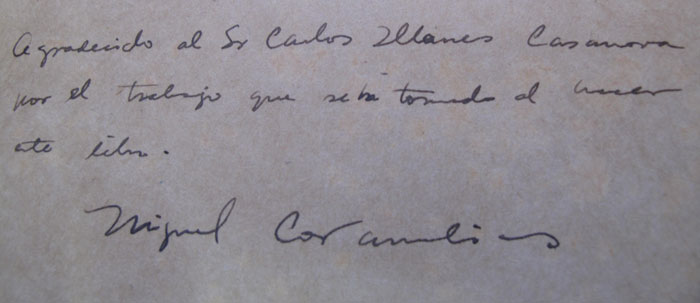 Agradecido al Sr Carlos Illanes Casanova
por el trabajo que se ha tomado al hacer
este libro.
Miguel Covarrubias